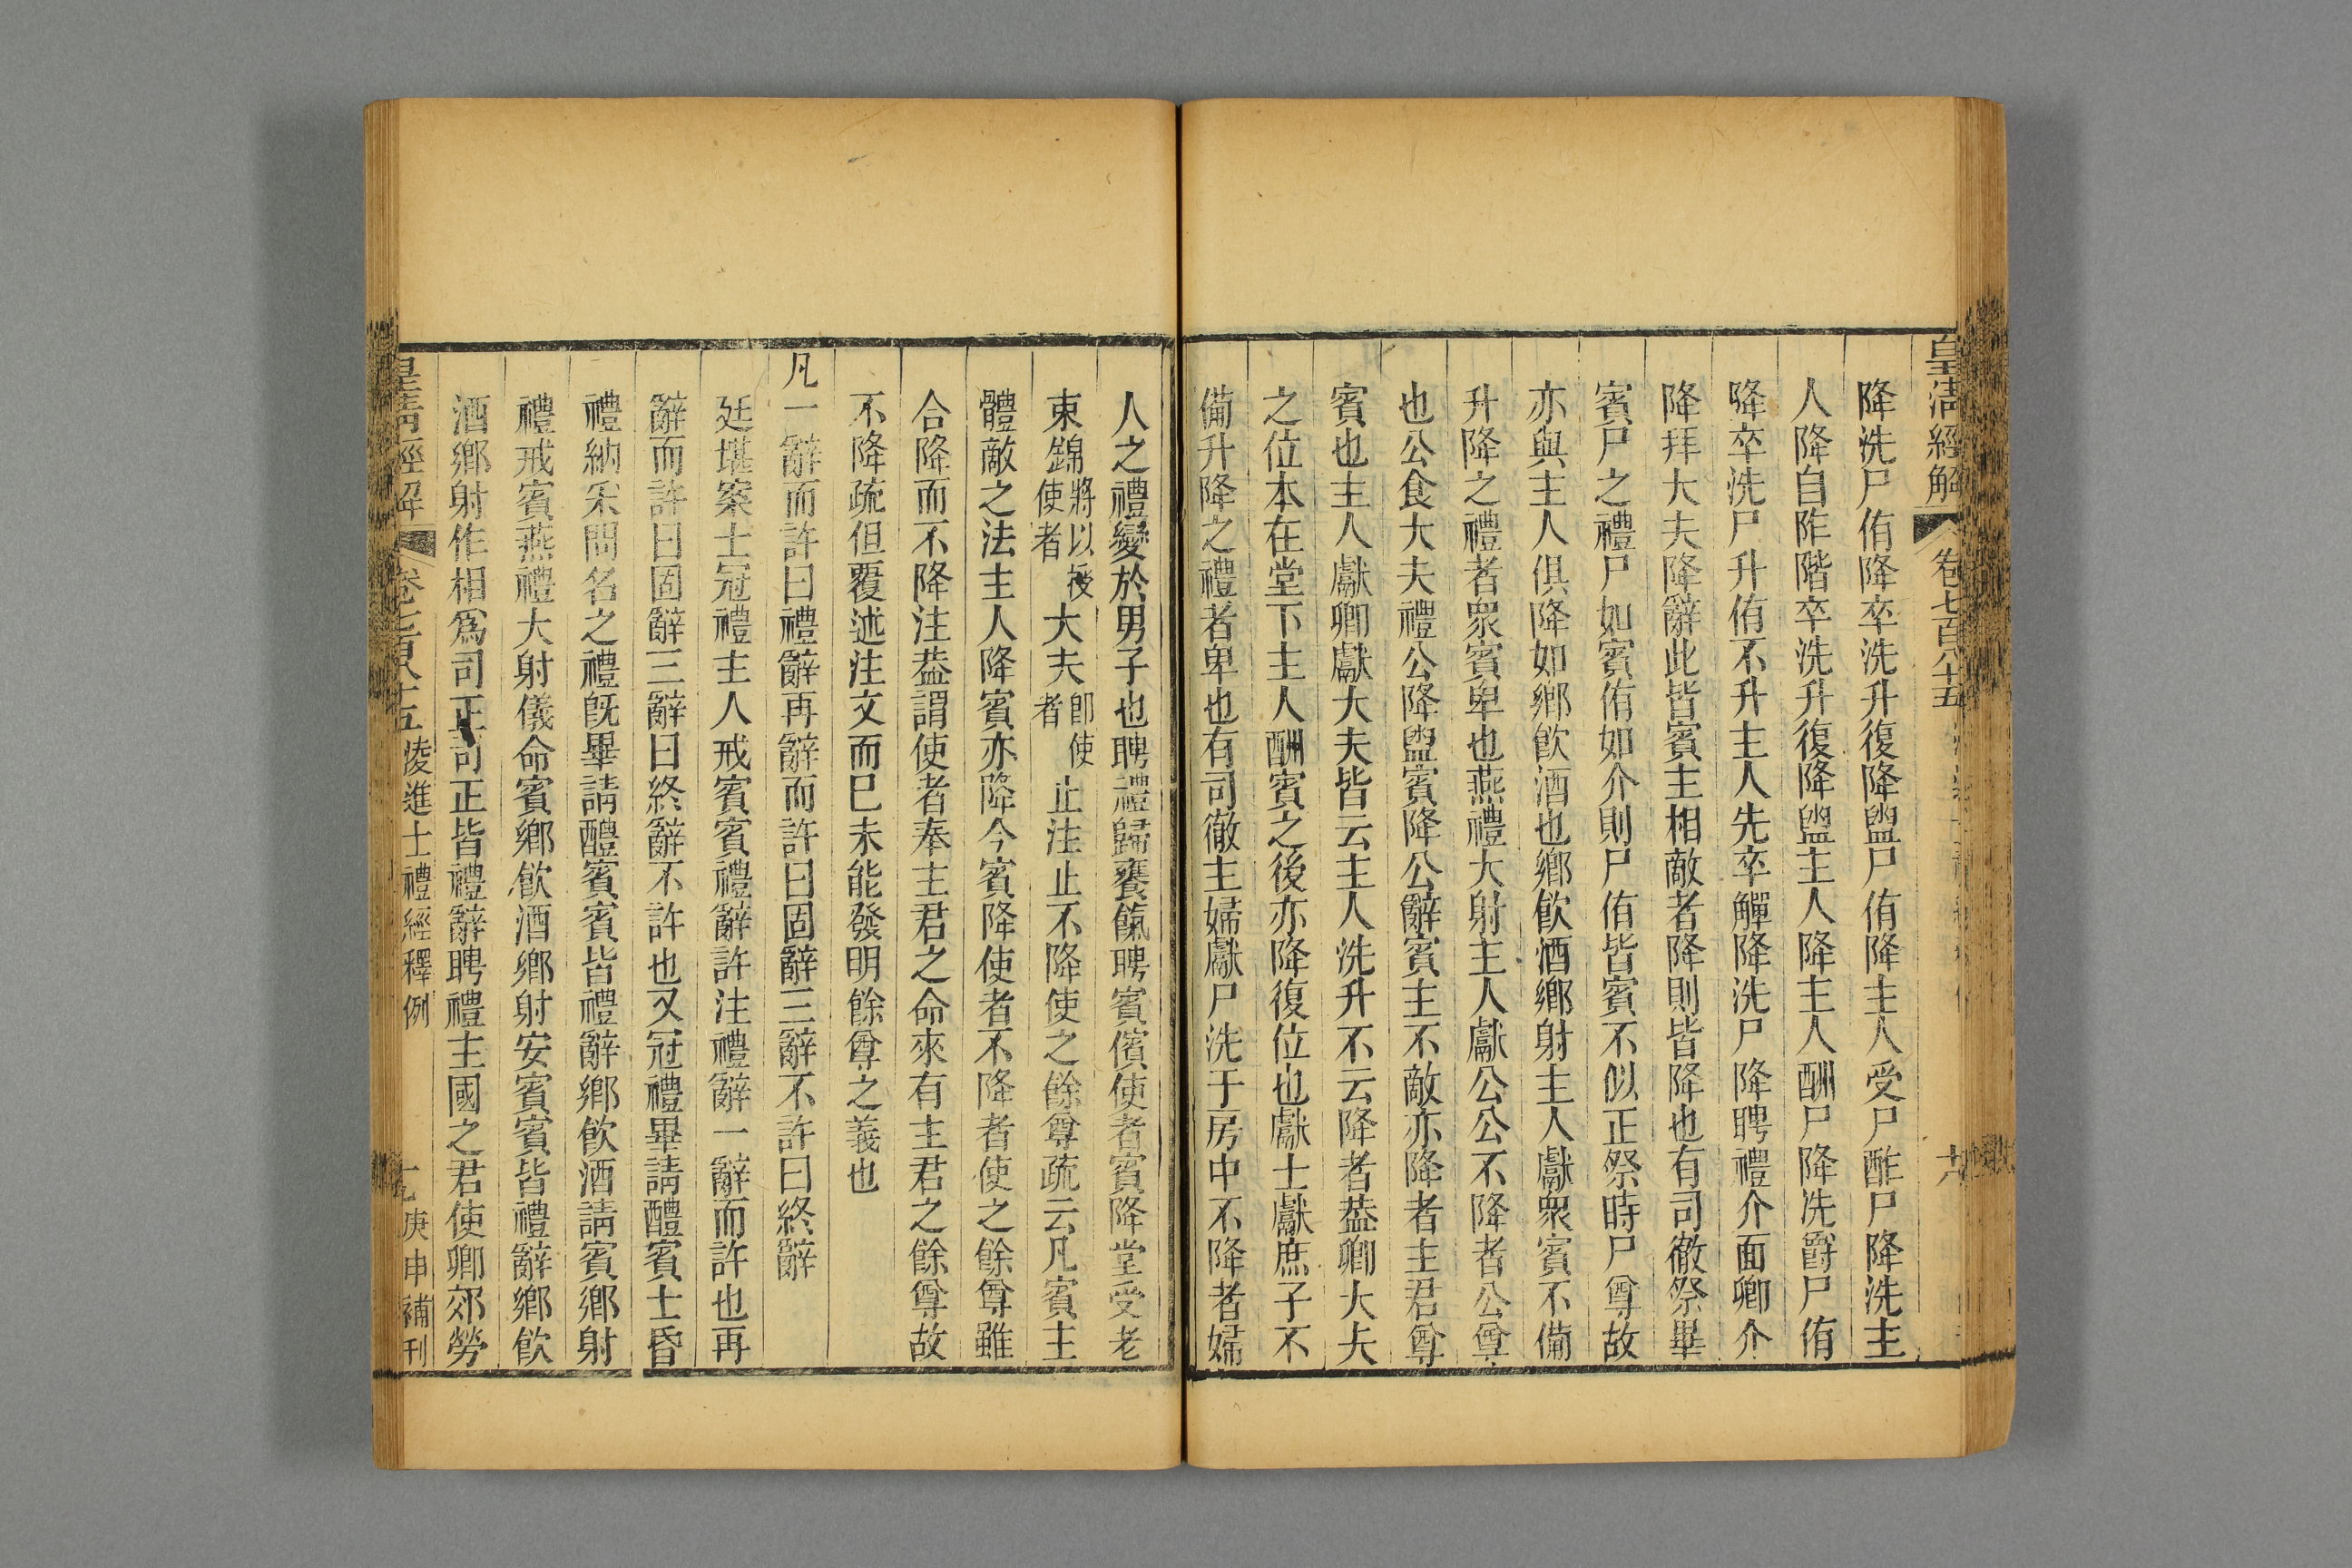 皇淸經解
卷七百八十五
降洗尸侑降卒洗升復降盥尸侑降主人受尸酢尸降洗主
人降自阼階卒洗升復降盥主人降主人酬尸降洗爵尸侑
降卒洗尸升侑不升主人先卒觶降洗尸降聘禮介面卿介
降拜大夫降辭此皆賓主相敵者降則皆降也有司徹祭畢
賓尸之禮尸如賓侑如介則尸侑皆賓不似正祭時尸尊故
亦與主人俱降如鄉飮酒也鄉飮酒鄉射主人獻衆賓不備
升降之禮者衆賓卑也燕禮大射主人獻公公不降者公尊
也公食大夫禮公降盥賓降公辭賓主不敵亦降者主君尊
賓也主人獻卿獻大夫皆云主人洗升不云降者葢卿大夫
之位本在堂下主人酬賓之後亦降復位也獻士獻庶子不
備升降之禮者卑也有司徹主婦獻尸洗于房中不降者婦
人之禮變於男子也聘禮歸饔餼聘賓儐使者賓降堂受老
束錦將以授使者大夫卽使者止注止不降使之餘尊疏云凡賓主
體敵之法主人降賓亦降今賓降使者不降者使之餘尊雖
合降而不降注葢謂使者奉主君之命來有主君之餘尊故
不降疏但覆述注文而巳未能發明餘尊之義也
凡一辭而許曰禮辭再辭而許曰固辭三辭不許曰終辭
廷堪案士冠禮主人戒賓賓禮辭許注禮辭一辭而許也再
辭而許曰固辭三辭曰終辭不許也又冠禮畢請醴賓士昏
禮納采問名之禮旣畢請醴賓賓皆禮辭鄉飮酒請賓鄉射
禮戒賓燕禮大射儀命賓鄉飮酒鄉射安賓賓皆禮辭鄉飮
酒鄉射作相爲司正司正皆禮辭聘禮主國之君使卿郊勞
皇淸經解
卷七百八十五
淩進士禮經釋例
庚申補刊